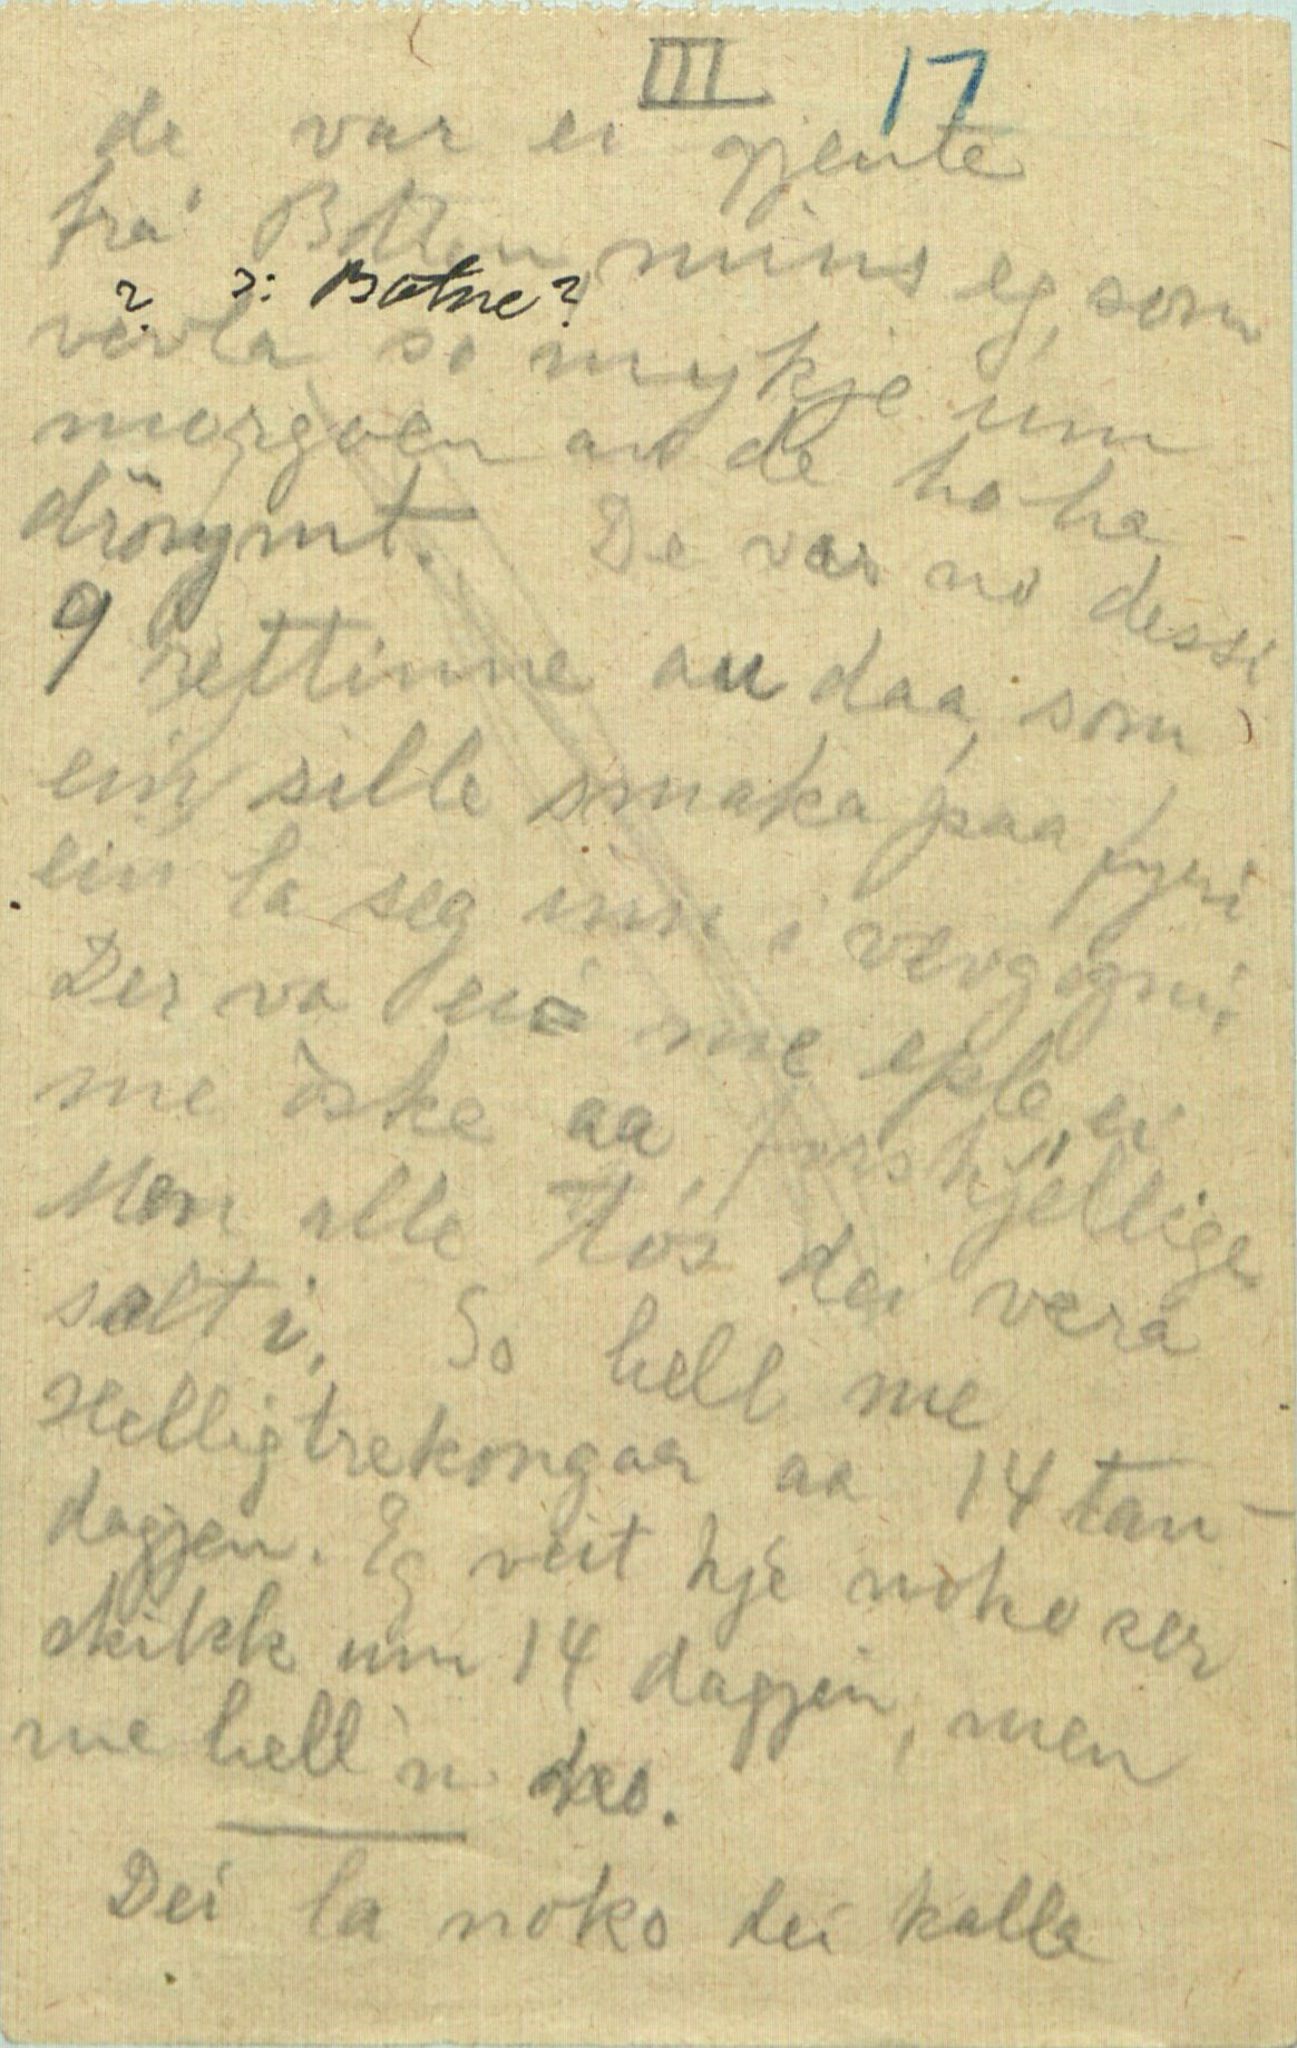 III 17
de var ei gjente
frå Botten mins eg, som
? ɔ: Botne?
vevla so mykje um
morgoen av de ho ha
dröymt. De var no dessi
9 rettinne au daa, som
ein sille smaka paa fyri
ein la seg inn i vevgogni.
Der va ei me eple, ei
me oske aa forskjellige
Men alle tos dei vera
salt i. So hell me
Helligtrekongaar aa 14 tan-
dagjen. Eg veit kje noko ser
skikk um 14 dagjen, men
me hell'n deo.
Dei la noko dei kalla